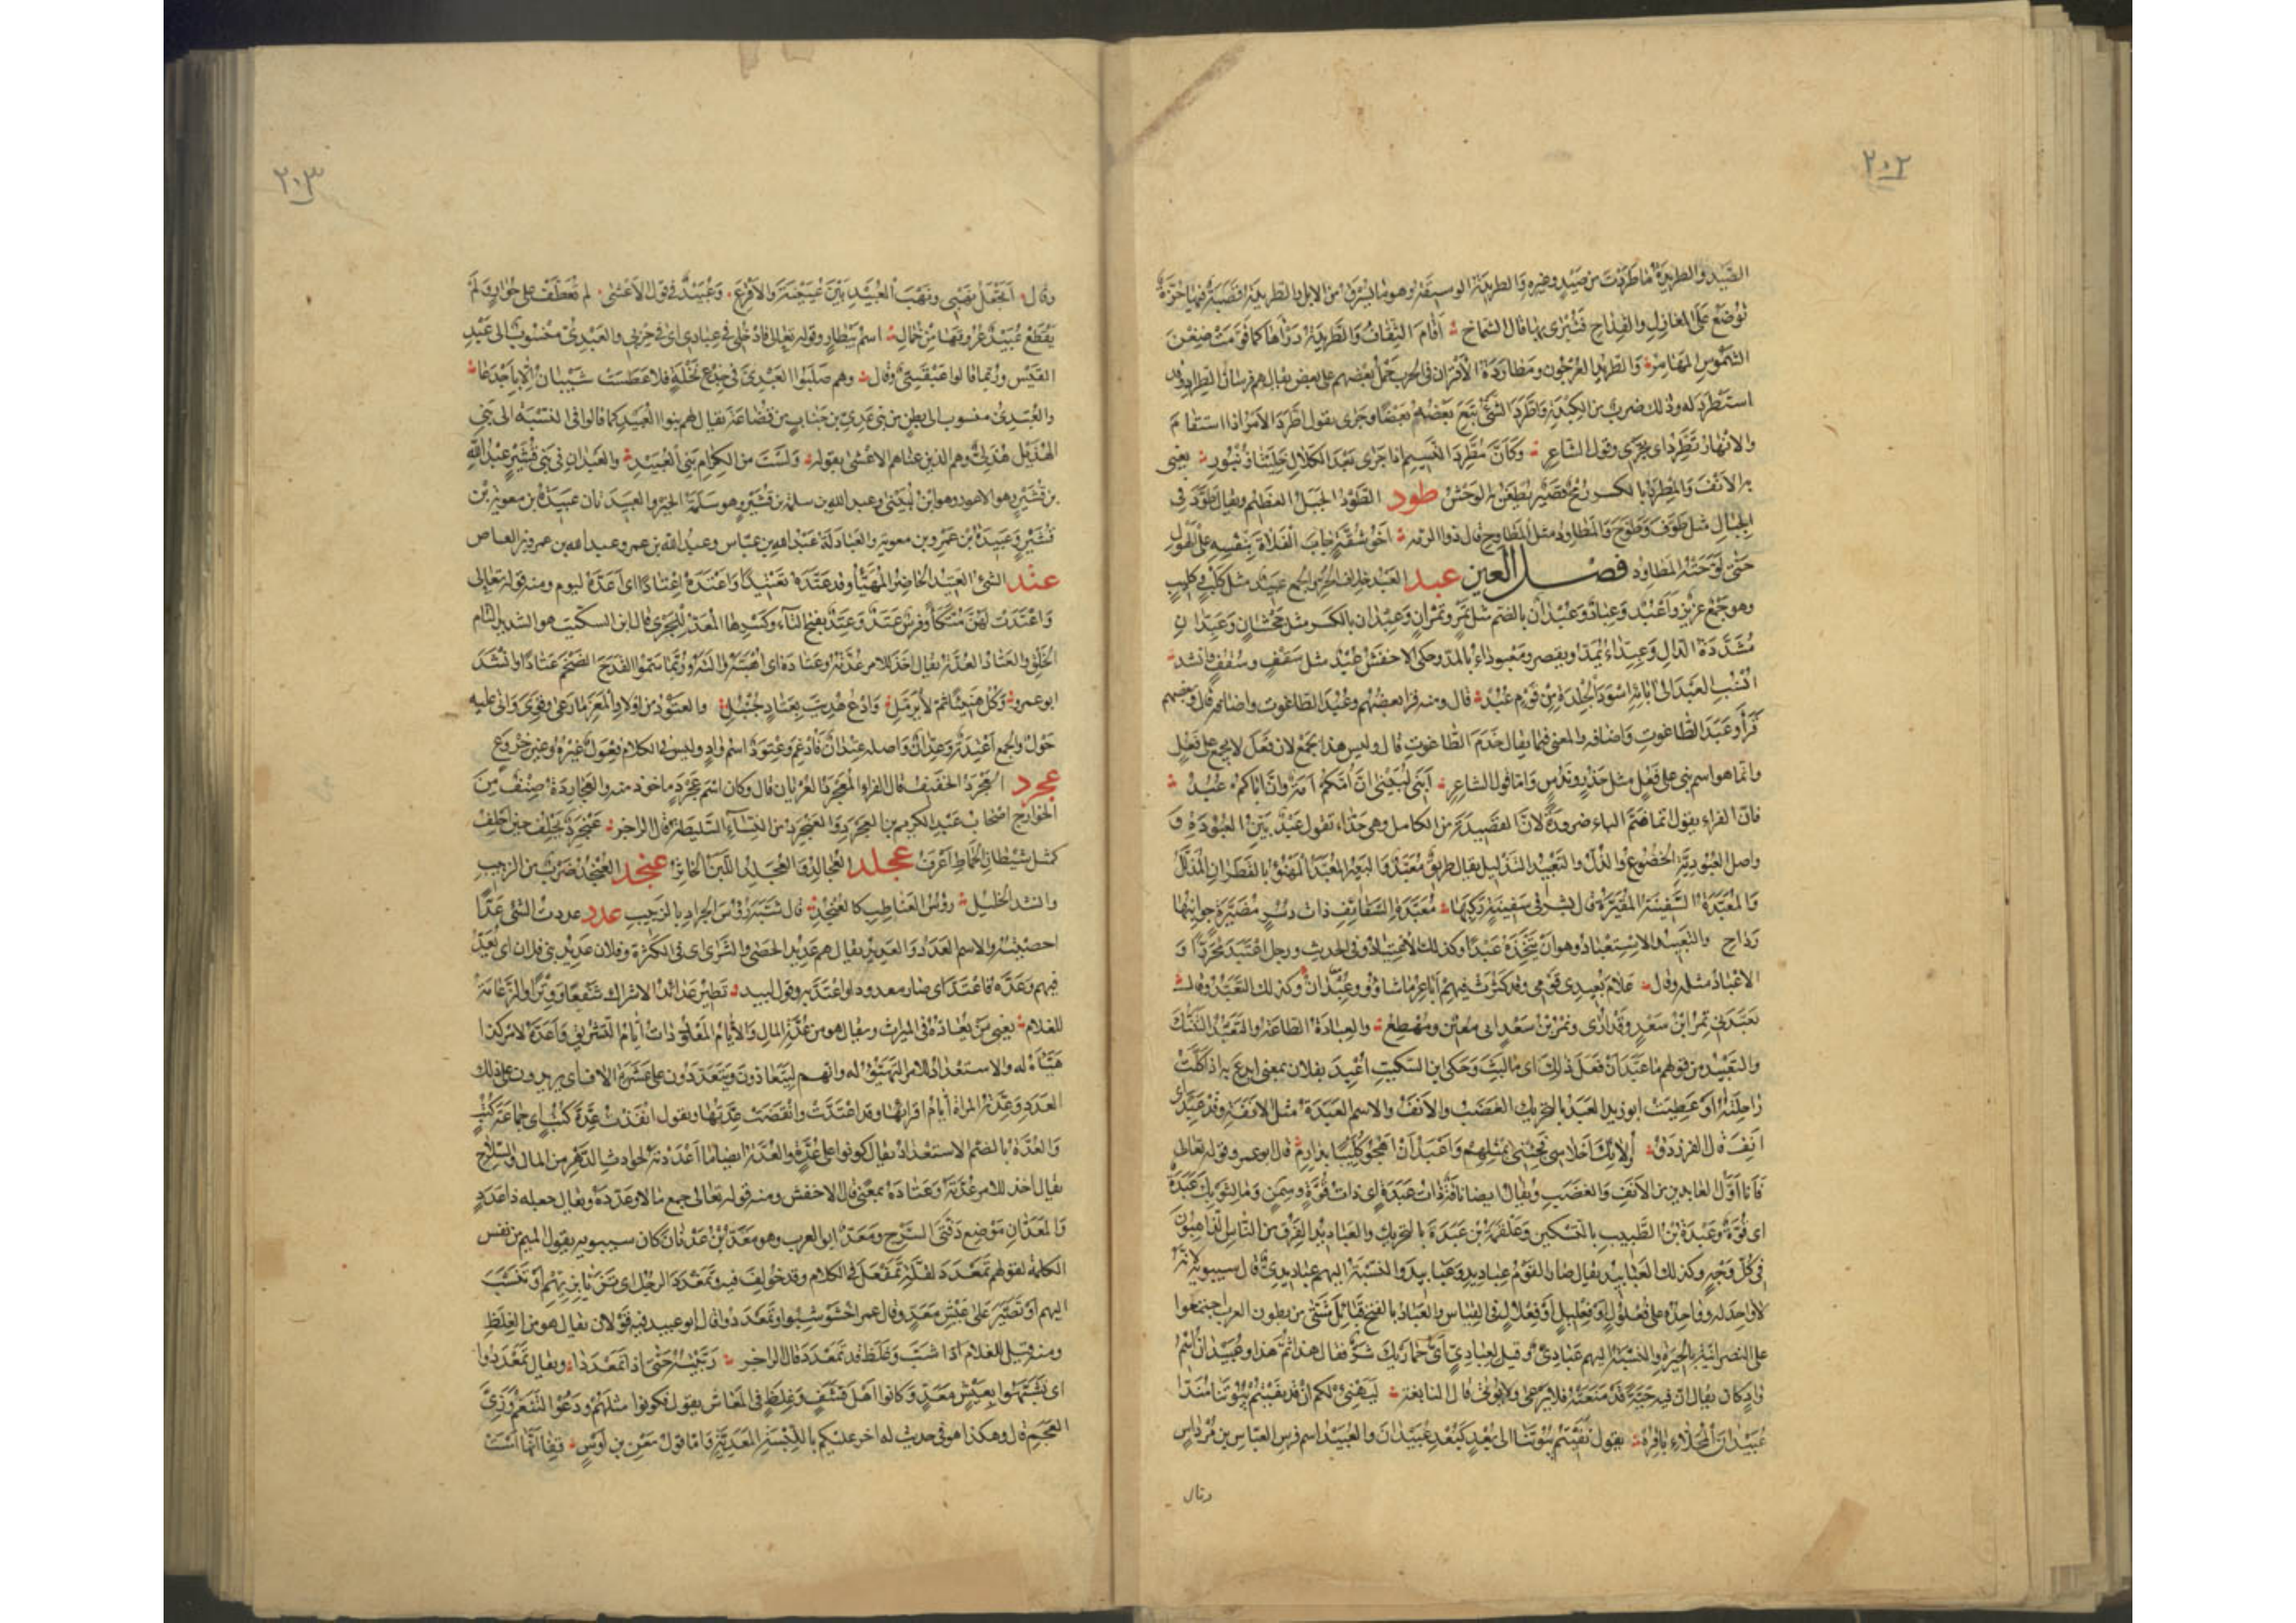 ٢٠٢
الصَّيْد والطريدةُ ما طَرَدْتَ من صَيْدٍ وغيره والطريدَةُ الوسيقة وهو ما يُسْرَقُ من الابل والطريدَةُ قَصَبَةٌ فيها حُزَّةٌ
تُوضَعُ على المغازِلِ والقِداحِ فتُبْرَى بها قال الشماخ اَقامَ الثِّقافُ والطَّريدَةُ دَرْأَها كما قَوَّمَتْ ضِغْنَ
الشَّمُوسِ المَهامِزُ والطريدُ العُرْجُون ومطارَدَةُ الأقْران في الحرب حَمْلُ بعضهم على بعض يقال هم فرسان الطراد وقد
استَطْرَدَ له وذلك ضربٌ من المكيدة واطَّرَدَ الشئُ تبع بَعْضُهُ بَعْضًا وجرى يقول اطَّرَدَ الامر اذا استقامَ
والانهارُ تَطَّرِدُ اى تجرى وقول الشاعر وكَأَنَّ مُطَّرِدَ النَّسيمِ اذا جَرَى بَعْدَ الكَلالِ خَلِيَّتا زُنْبُورِ يعنى
به الأنْفَ والمِطْرَدُ بالكسر رُمْحٌ قَصيرٌ يُطْعَنُ به الوَحْشُ طود الطَّوْدُ الجَبَلُ العَظيم ويقال طَوَّدَ فى
الجبالِ مثل طَوَّفَ وطَوَّحَ والمَطاوِدُ مثل المَطاوِح قال ذوالرمّة أخُو شُقَّةٍ جابَ الفَلاةَ بِنَفْسِهِ على الهَوْلِ
حَتَّى لَوَّحَتْهُ المَطاوِدُ فصل العين عبد العَبْد خلاف الحرّ والجمع عَبيدٌ مثل كَلْبٍ وكَليبٍ
وهو جَمْعٌ عزيز واَعْبُدٌ وعِبادٌ وعُبْدانٌ بالضم مثل تَمْرٍ وتُمْرانٍ وعِبْدان بالكسر مثل جَحْشانٍ وعِبِدّانٌ
مُشَدَّدَةَ الدالِ وعِبِدّاءُ يُمَدُّ ويقصر ومَعْبوداءُ بالمدّ وحكى الاخفش عُبُدٌ مثل سَقْفٍ وسُقُفٍ وانشد
انْسُبِ العَبْدَ الى آبائِهِ اَسْوَدَ الجِلْدَةِ من قَوْمٍ عُبُدْ قال ومنه قرأ بعضُهُم وعُبُدَ الطاغوت واضافه قال وبعضهم
قَرَأَ وعَبُدَ الطاغوتِ واضافه والمعنى فيما يقال خَدَمَ الطاغوتِ قال وليس هذا بجمع لان فَعْلاً لا يجمع على فَعُلٍ
وانما هو اسم بنى على فَعُلٍ مثل حَذُرٍ ونَدُسٍ واما قول الشاعر اَبَنى لُبَيْنَى اِنَّ اُمَّكُمْ اَمَةٌ وانَّ اَباكُمُ عَبُدُ
فان الفراء يقول انما ضَمَّ الباء ضرورةً لانّ القصيدة من الكامل وهى حَذّاء تقول عَبْدٌ بَيِّنُ العُبُودَةِ و
واصل العُبُودِيَّةِ الخُضُوعُ والذُّلّ والتَعْبيدُ التذليل يقال طريقٌ مُعَبَّدٌ والبعيرُ المُعَبَّدُ المَهْنُوءُ بالقَطِرانِ المُذَلَّلُ
والمُعَبَّدَةُ السَّفينةُ المُقَيَّرَةُ قال بشر فى سَفينةٍ رَكِبَها مُعَبَّدَةِ السَّقائِفِ ذات دُسْرٍ مُضَبَّرَةٍ جوانِبُها
رَداحِ والتَعْبيدُ الاسْتِعْبادُ وهو اَنْ يَتَّخِذَهُ عَبْدًا وكذلك الاعْتِبادُ وفى الحديث ورجل اعْتَبَدَ مُحَرَّرًا و
الاعْبادُ مثله وقال عَلامَ يُعْبِدُنى قَوْمى وقد كَثُرَتْ فيهم أباعِرُ ما شاؤُو وعُبْدانُ وكذلك التَعَبُّدُ وقال
تَعَبَّدَنى نِمْرُ ابْنُ سَعْدٍ وقد اُرَى ونِمْرُ بْنُ سَعْدٍ لى مُطيعٌ ومُهْطِعُ والعِبادَةُ الطاعة والتعبُّدُ التَّنَسُّكُ
والتَعْبيدُ من قولهم ما عَبَّدَ اَنْ فَعَلَ ذلك اى ما لَبِثَ وحَكى ابن السكيت اُعْبِدَ بفلان بمعنى اُبْدِعَ به اذا كَلَّتْ
راحِلَتُهُ اَوْ عَطِبَتْ ابو زيد العَبَدُ بالتحريك الغَضَبُ والاَنَفُ والاسم العَبَدَةُ مثل الاَنَفَةِ وقد عَبِدَ اى
اَنِفَ قال الفرزدق أُولائِكَ أَحْلاسى فَجِئْنى بمثْلِهِمُ واَعْبَدُ اَنْ أَهْجُو كُلَيْبًا بدارِمِ قال ابو عمرو وقوله تعالى
فأنا أوَّلُ العابدين من الاَنَفِ والغَضَبِ ويقال ايضا ناقَةٌ ذاتُ عَبَدَةٍ اى ذات قُوَّةٍ وسِمَنٍ وما لثوبك عَبَدَةٌ
اى قُوَّةٌ وعَبْدَةُ بْنُ الطَّبيبِ بالتسكين وعَلْقَمَةُ بْنُ عَبَدَةَ بالتحريك والعَباديدُ الفِرَقُ من النّاس الذّاهِبُونَ
فى كُلّ وَجْهٍ وكذلك العَبابيدُ يقال صار القَوْمُ عباديدَ وعَبابيدَ والنسْبَةُ اليهم عبادِيدىٌّ قال سيبويه لانه
لا واحِدَ له وواحِدُهُ على فُعْلُولٍ او فِعْليلٍ أَوْ فِعْلالٍ فى القياس والعبادُ بالفتح قَبائِلُ شَتَّى من بطون العرب اجتمعوا
على النصرانية بالحِيرَةِ والنسْبَةُ اليهم عَبادىٌّ وقيل لعِبادىٍّ اَىُّ حِمارَيْكَ شَرٌّ فقال هذا ثُمَّ هذا وعُبَيْدانُ اسْمُ
وادٍ كان يقال انّ فيه حَيَّةً قَدْ مَنَعَتْهُ فلا يُرْعى ولا يُؤْتى قال النابغة لِيَهْنِئْ لكم اَنْ قد نَفَيْتُمْ بُيُوتَنا مُنَدَّا
عُبَيْدانَ المُحَلّاءِ باقِرُهْ يقول نَفَيْتُم بُيُوتَنا الى بُعْدٍ كَبُعْدِ عُبَيْدانَ والعُبَيْدُ اسم فرس العبّاس بن مِرْداس
وقال
٢٠٣
وقال اَتَجْعَلُ نَهْبى ونَهْبَ العُبَيْدِ بَيْنَ عُيَيْنَةَ والاَقْرَعِ وعُبَيْدٌ فى قول الأعشى لم تُعَطَّفْ على حُوارٍ ولم
يُقَطِّعْ عُبَيْدٌ عُرُوقَها من خُمالِ اسمُ بَيْطارٍ وقوله تعالى فادْخُلى فى عبادى اى فى حِزْبى والعَبْدىُّ منسوبٌ الى عَبْدِ
القَيْس ورُبّما قالوا عَبْقَسىٌّ وقال وهم صَلَبُوا العَبْدىَّ فى جِذْعِ نَخْلَةٍ فلا عَطَسَتْ شَيْبانُ الا بأَجْدَعا
والعُبَدىُّ منسوب الى بطن من بنى عَدىّ بن جناب من قُضاعَةَ يقال لهم بنوا العُبَيْد كما قالوا فى النسْبَةِ الى بَنى
الهُذَيْل هُذَلىٌّ وهم الذين عناهم الاعشى بقوله ولَسْتَ من الكِرامِ بَنى العُبَيْدِ والعَبْدانِ فى بَنى قُشَيْرٍ عَبْدُ اللهِ
بن قُشَيْرٍ وهو الاعور وهو ابْنُ لُبَيْنى وعبد الله بن سلمة بن قُشَيْرٍ وهو سَلَمَةُ الخير والعَبيدَتان عَبيدَةُ بن معوية بْن
قُشَيْرٍ وعَبيدَةُ بن عَمْرِو بن معوية والعَبادِلَةُ عبدالله بن عبّاس وعبدالله بن عمر وعبدالله بن عمرو بن العاص
عتد الشئ العَتيدُ الحاضِرُ المُهَيَّأُ وقد عَتَّدَهُ تَعْتيدًا واَعْتَدَهُ اِعْتادًا اى اَعَدَّهُ ليوم ومنه قوله تعالى
وَاَعْتَدَتْ لَهُنَّ مُتَّكَأً وفرسٌ عَتَدٌ وعَتِدٌ بفتح التاء وكَسْرِها المُعَدُّ للجَرْى قال ابن السكيت هو الشديد التام
الخَلْقِ والعَتادُ العُدَّةُ يقال اَخَذَ للامر عُدَّتَهُ وعَتادَهُ اى اُهْبَتَهُ وآلَتَهُ ورُبّما سَمّوا القَدَحَ الضَّخْمَ عَتادًا وانْشَدَ
ابو عمرو فَكُلْ هَنيئًا ثم لا تُزَمِّلْ وادْعُ هُديتَ بِعَتادٍ جُنْبُلِ والعتودُ من اَوْلادِ المَعَزِ ما رَعى وقَوِىَ واَتى عليه
حَوْلٌ والجمع اَعْتِدَةٌ وعِدّانٌ واصله عِتْدانٌ فأُدْغِمَ وعِتْوَدٌ اسْمُ وادٍ وليس فى الكلام فِعْوَلٌ غَيْرُهُ وغير خِرْوَعٍ
عجرد العَجْرَدُ الخَفيفُ قال الفراء المُعَجْرَدُ العُرْيانُ قال وكان اسْمَ عَجْرَدٍ ماخوذ منه والعَجارِدَةُ صِنْفٌ مِنَ
الخوارجِ اَصْحابُ عَبْدِ الكريم بن العَجْرَدِ والعَنْجَرِدُ من النِّساءِ السَّليطَةُ قال الراجز عَنْجَرِدٌ تَحْلِفُ حينَ اَحْلِفُ
كمثل شَيْطانِ الحَماطِ اَعْرَفُ عجلد العُجالِدُ والعُجَلِدُ اللَّبَنُ الخاثِرُ عنجد العُنْجُدُ ضَرْبٌ من الزبيبِ
وانشد الخليل رُؤُسُ العَناظِبِ كالعُنْجُدِ قال شَبَّهَ رُؤُسَ الجَرادِ بالزبيبِ عدد عددتُ الشئَ عَدًّا
احصيته والاسم العَدَدُ والعَديدُ يقال هم عَديدُ الحَصى والثَّرى اى فى الكَثرة وفلان عَديدُ بنى فلان اى يُعَدُّ
فيهم وعَدَّهُ فاعْتَدَّ اى صار معدودا واعْتَدَّ به وقول لبيد تَطيرُ عَدائِدُ الاشْراكِ شَفْعًا ووِتْرًا والزَّعامَةُ
للغلامِ يعنى مَنْ يُعادُّهُ فى الميراث ويقال هو من عُدَّةِ المالِ والأيّامُ المَعْدُوداتُ اَيّامُ التَّشْريقِ واَعَدَّهُ لامر كذا
هَيَّأَهُ له والاستعدادُ للامر التَّهَيُّؤُ له وانهم لَيَتَعادُّونَ ويَتَعَدَّدُونَ على عَشَرَةِ الافٍ اى يزيدون على ذلك
العَدَدِ وعِدَّةُ المرأة اَيّامُ اَقْرائِها وقد اعْتَدَّتْ وانْقَضَتْ عِدَّتُها وتقول انْفَذْتُ عِدَّةَ كُتُبٍ اى جَماعَةَ كُتُبٍ
والعُدَّةُ بالضم الاستعداد يقال كونوا على عُدَّةٍ والعُدَّةُ ايضا ما اَعْدَدْتَهُ لحوادث الدَّهْرِ من المال والسِّلاحِ
يقال اَخَذَ للامر عُدَّتَهُ وعَتادَهُ بمعنًى قال الاخفش ومنه قوله تعالى جمع مالا وعدّدَهُ ويقال جعله ذا عَدَدٍ
والمَعَدّانِ مَوْضِعُ دَفَّتَىِ السَّرْجِ ومَعَدٌّ ابو العرب وهو مَعَدُّ بْنُ عَدْنانَ وكان سيبويه يقول الميم من نفس
الكلمة لقولهم تَمَعْدَدَ لِقِلَّةِ تَمَفْعَلَ فى الكلام وقد خُولِفَ فيه وتَمَعْدَدَ الرجُلُ اى تَزَيّا بِزِيِّهِمْ اَوْ تَنَسَّبَ
اليهم او تَصَبَّرَ على عَيْشِ مَعَدٍّ وقال عمر اخْشَوْشِنُوا وتَمَعْدَدُوا قال ابو عبيد فيه قَوْلان يقال هو من الغِلَظِ
ومنه قيل للغلام اذا شَبَّ وغَلُظَ قد تَمَعْدَدَ قال الراجز رَبَّيْتُهُ حَتّى اذا تَمَعْدَدا ويقال تَمَعْدَدُوا
اى تَشَبَّهُوا بِعَيْشِ مَعَدٍّ وكانوا اَهْلَ قَشَفٍ وغِلَظٍ فى المَعاشِ يقول فكونوا مثْلَهُمْ ودَعُوا التَّنَعُّمَ وزِىَّ
العَجَمِ قال وهكذا هو فى حديث له اخر عليكم باللِّبْسَةِ المَعَدِّيَّةِ واما قول مَعْنِ بن اَوْسٍ قِفا انَّها اَمْسَتْ